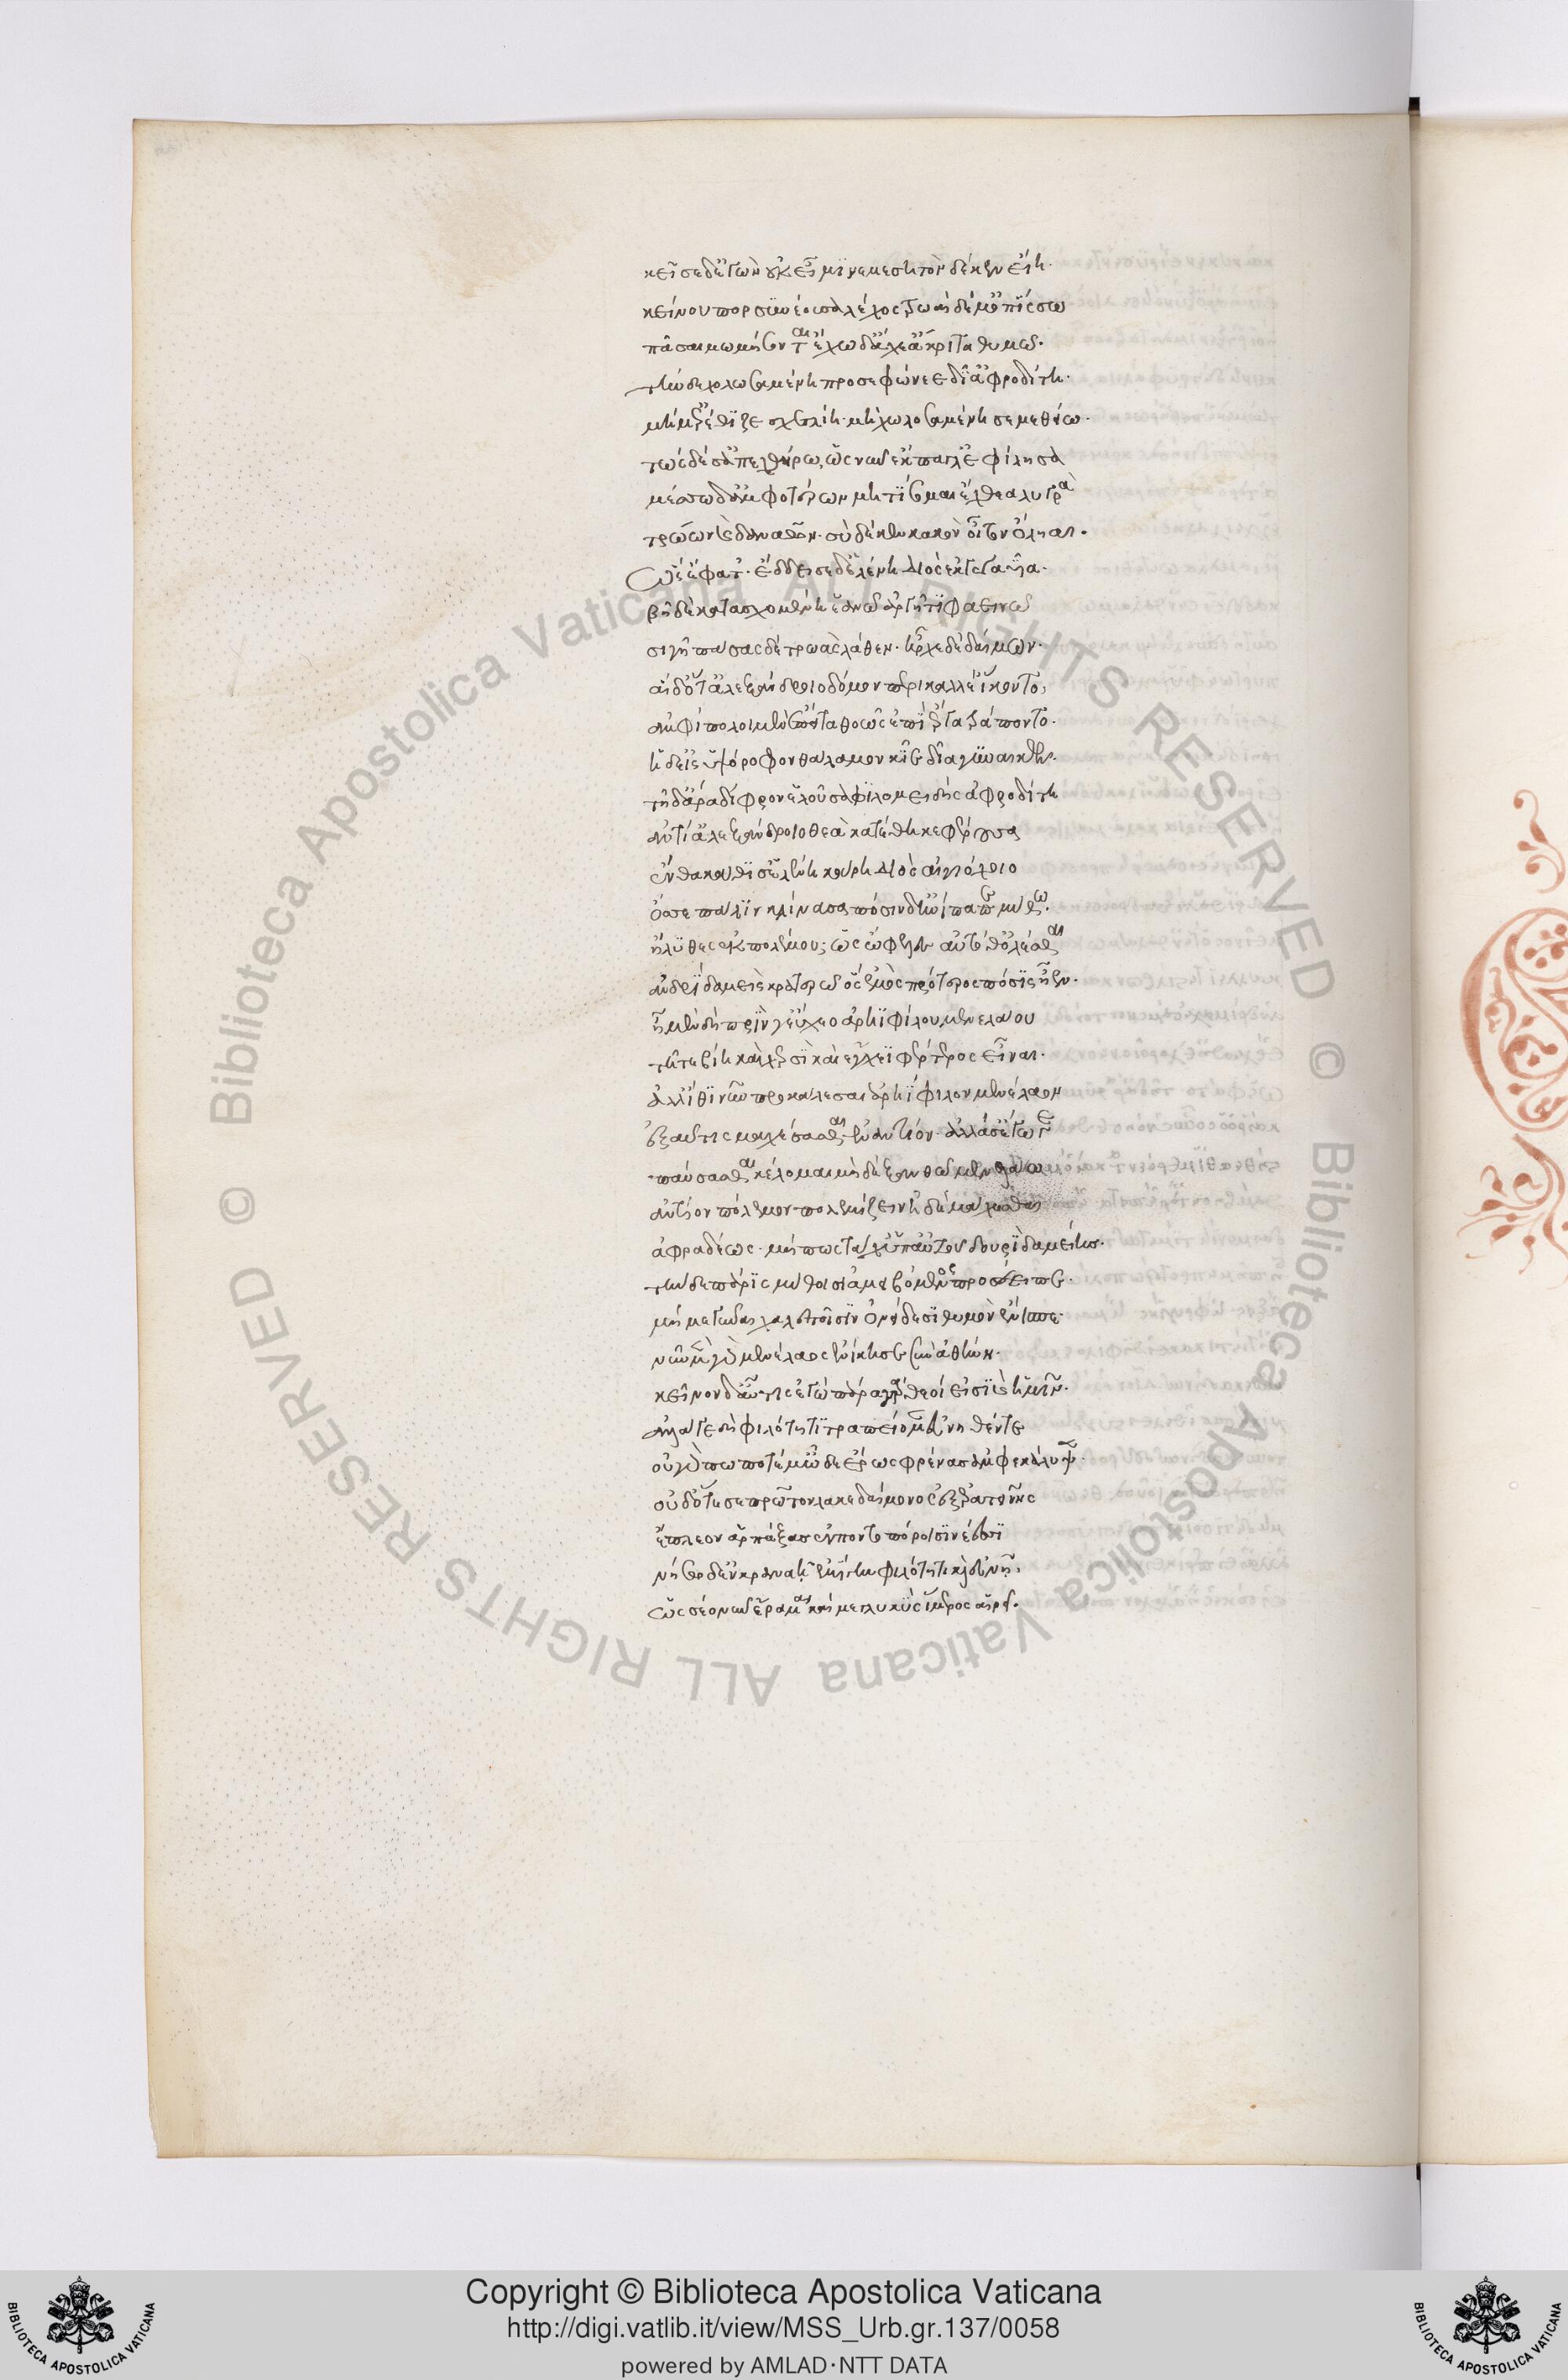 κεῖσε δ' ἐγὼν οὐκ εἶμι νεμεσητὸν δέ κεν εἴη·
κείνου πορσυνέουσα λέχος τρωαὶ δέ μ' ὀπίσσω
πᾶσαι μωμήσονται ἔχω δ' ἄχε' ἄκριτα θυμῶ·
τὴν δὲ χολωσαμένη προσεφώνεε δῖ' ἀφροδίτη·
μή μ' ἔρεθϊζε σχετλίη· μὴ χωλοσαμένη σε μεθείω·
τὼς δέ σ' ἀπεχθήρω, ὡς νῦν ἔκπαγλ' ἐφίλησα
μέσσω δ' ἀμφοτέρων μητίσομαι ἔχθεα λυγρὰ
τρώων καὶ δαναῶν· σὺ δέ κεν κακὸν οἶτον ὄληαι·
ὣς ἔφατ'· ἔδδεισε δ' ἑλένη διὸς ἐκγεγαυῖα·
βῆ δὲ κατασχομένη ἑανῶ ἀργῆτι φαεινῶ
σιγῆ πάσας δὲ τρωὰς λάθεν· ἦρχε δὲ δαίμων·
αἱ δ' ὅτ' ἀλεξάνδροιο δόμον περικαλλέ' ἵκοντο,
ἀμφίπολοι μὲν ἔπειτα θοῶς ἐπὶ ἔργα τράποντο·
ἡ δ' εἰς ὑψόροφον θάλαμον κίε δῖα γυναικῶν·
τῆ δ' ἄρα δίφρον ἑλοῦσα φιλομειδὴς ἀφροδίτη
ἀντί' ἀλεξάνδροιο θεὰ κατέθηκε φέρουσα
ἔνθα κάθιζ' ἑλένη κούρη διὸς αἰγιόχοιο
ὄσσε πάλιν κλίνασα πόσιν δ' ἠνίπαπε μύθω·
ἤλυθες ἐκ πολέμου; ὡς ὤφελες αὐτόθ' ὀλέσθαι
ἀνδρὶ δαμεὶς κρατερῶ ὃς ἐμὸς πρότερος πόσις ἦεν·
ἦ μὲν δὴ πρίν γ' εὔχεο ἀρηϊφίλου μενελάου
σῆ τε βίη καὶ χερσὶ καὶ ἔγχεϊ φέρτερος εἶναι·
ἀλλ' ἴθι νῦν προκάλεσσαι ἀρηΐφιλον μενέλαον
ἐξαῦτις μαχέσασθαι ἐναντίον· ἀλλά σ' ἔγωγε
παύσασθαι κέλομαι μὴ δὲ ξανθῶ μενελάω
ἀντίον πόλεμον πολεμίζειν ἠδὲ μάχεσθαι
ἀφραδέως· μήπως τάχ' ὑπ' αὐτοῦ δουρὶ δαμείης·
τὴν δὲ πάρις μύθοισιν ἀμειβόμενος προσέειπε·
μή με γύναι χαλεποῖσιν ὀνείδεσι θυμὸν ἔνιπτε·
νῦν μὲν γὰρ μενέλαος ἐνίκησε σὺν ἀθήνη·
κεῖνον δ' αὖτις ἐγώ· πάρα γὰρ θεοί εἰσι καὶ ἡμῖν·
ἀλλ' ἄγε δὴ φιλότητι τραπείομεν εὐνηθέντε
οὐ γὰρ πώποτέ μ' ὧδε ἔρως φρένας ἀμφεκάλυψε·
οὐδ' ὅτε σε πρῶτον λακεδαίμονος ἐξ ἐρατεινῆς
ἔπλεον ἁρπάξας ἐν ποντοπόροισι νέεσσι
νήσω δ' ἐν κραναῆ ἐμίγην φιλότητι καὶ εὐνῆ·
ὥς σεο νῦν ἔραμαι καί με γλυκὺς ἵμερος αἱρεῖ·
Copyright © Biblioteca Apostolica Vaticana
http://digi.vatlib.it/view/MSS_Urb.gr.137/0058
powered by AMLAD·NTT DATA